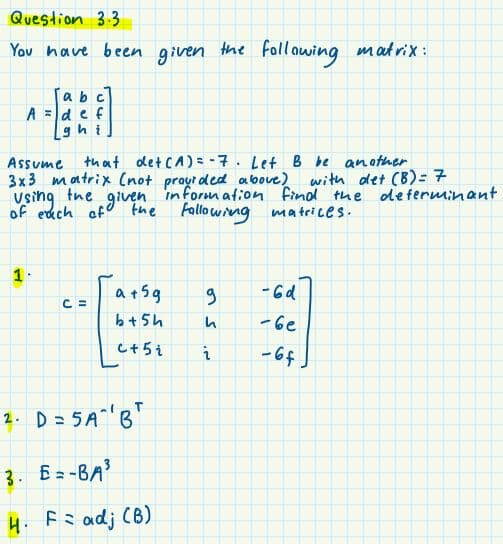 Question 3.3
You have been given the following matrix:
A = [a b c
d e f
g h i]
Assume that det(A) = -7. Let B be another
3x3 matrix (not provided above) with det (B) = 7
Using the given information find the determinant
of each of the following matrices.
1.
C = [a+5g g -6d
b+5h h -6e
c+5i i -6f]
2. D = 5A⁻¹Bᵀ
3. E = -BA³
4. F = adj (B)